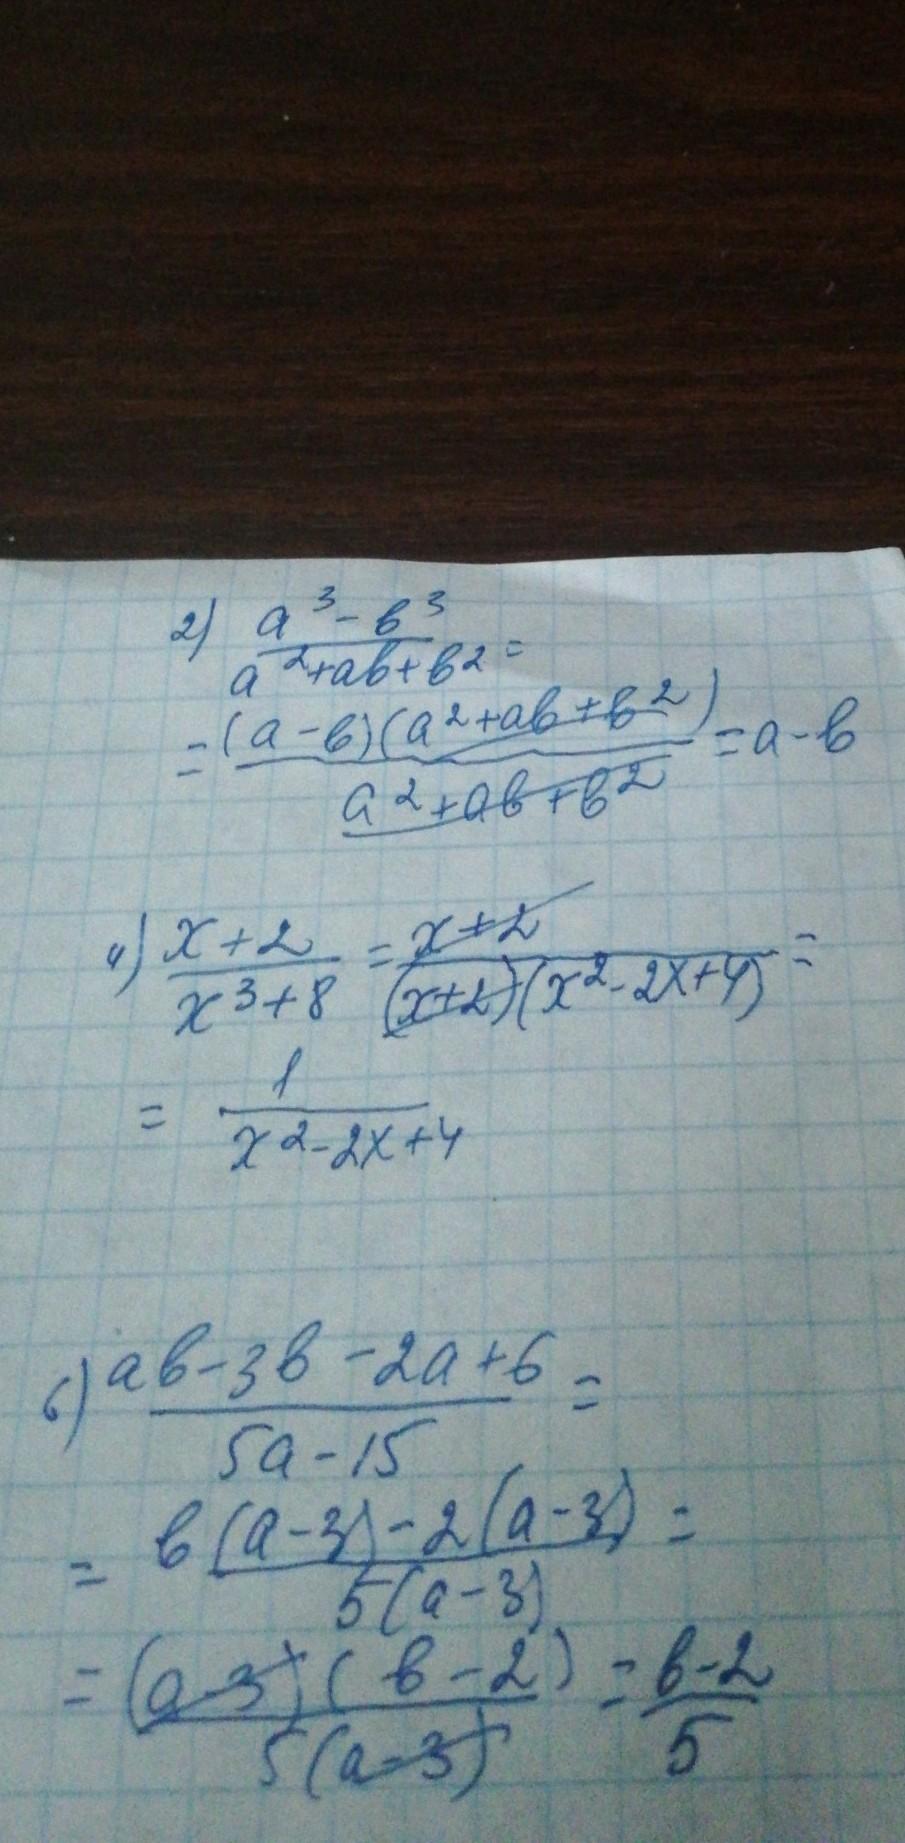 2) (a³-b³)/(a²+ab+b²)=
=((a-b)(a²+ab+b²))/(a²+ab+b²)=a-b
4) (x+2)/(x³+8)=(x+2)/((x+2)(x²-2x+4))=
=1/(x²-2x+4)
6) (ab-3b-2a+6)/(5a-15)=
=(b(a-3)-2(a-3))/(5(a-3))=
=((a-3)(b-2))/(5(a-3))=(b-2)/5